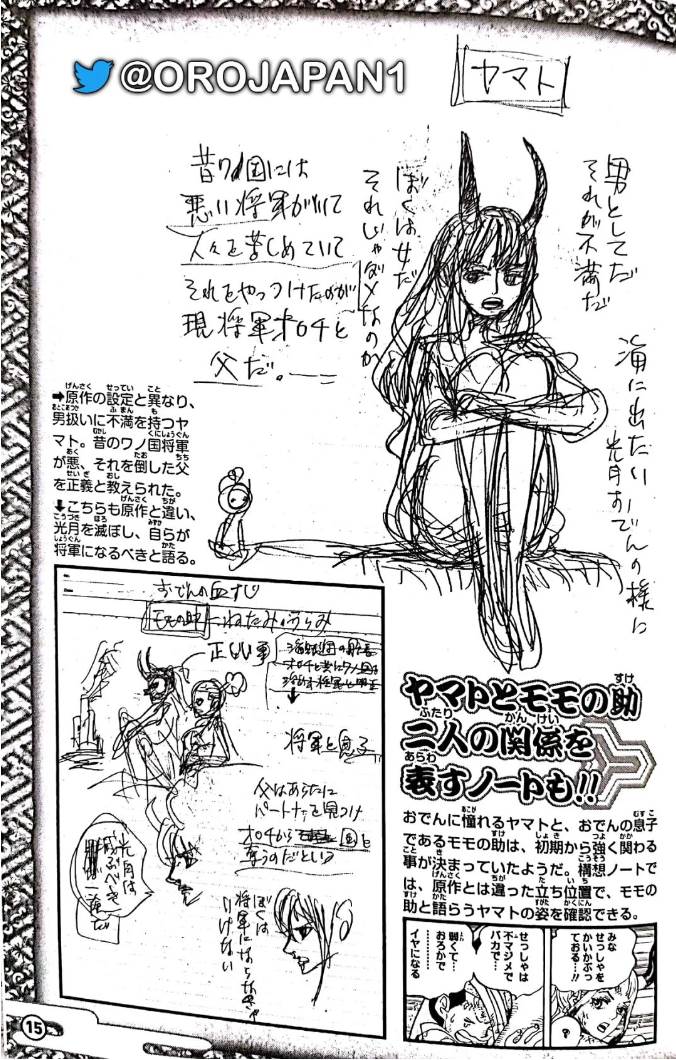 @OROJAPAN1
ヤマト
男としてだ
それが不満だ
海に出たい
光月おでんの様に
ぼくは女だ
それじゃダメなのか
昔ワノ国には
悪い将軍がいて
人々を苦しめていて
それをやっつけたのが
現将軍オロチと
父だ。
➡原作の設定と異なり、
男扱いに不満を持つヤ
マト。昔のワノ国将軍
が悪、それを倒した父
を正義と教えられた。
⬇こちらも原作と違い、
光月を滅ぼし、自らが
将軍になるべきと語る。
おでんの血すじ
モモの助 ねたみ うらみ
正しい事
将軍と息子
父はあらたに
パートナーを見つけ
オロチから 国を
奪うのだという
光月は
滅ぶべき
一族だ
ぼくは
将軍にならなきゃ
いけない
ヤマトとモモの助
二人の関係を
表すノートも!!
おでんに憧れるヤマトと、おでんの息子
であるモモの助は、初期から強く関わる
事が決まっていたようだ。構想ノートで
は、原作とは違った立ち位置で、モモの
助と語らうヤマトの姿を確認できる。
みな
せっしゃを
かいかぶっ
ておる…!!
せっしゃは
不マジメで
バカで…
弱くて…
おろかで
イヤになる
?
15